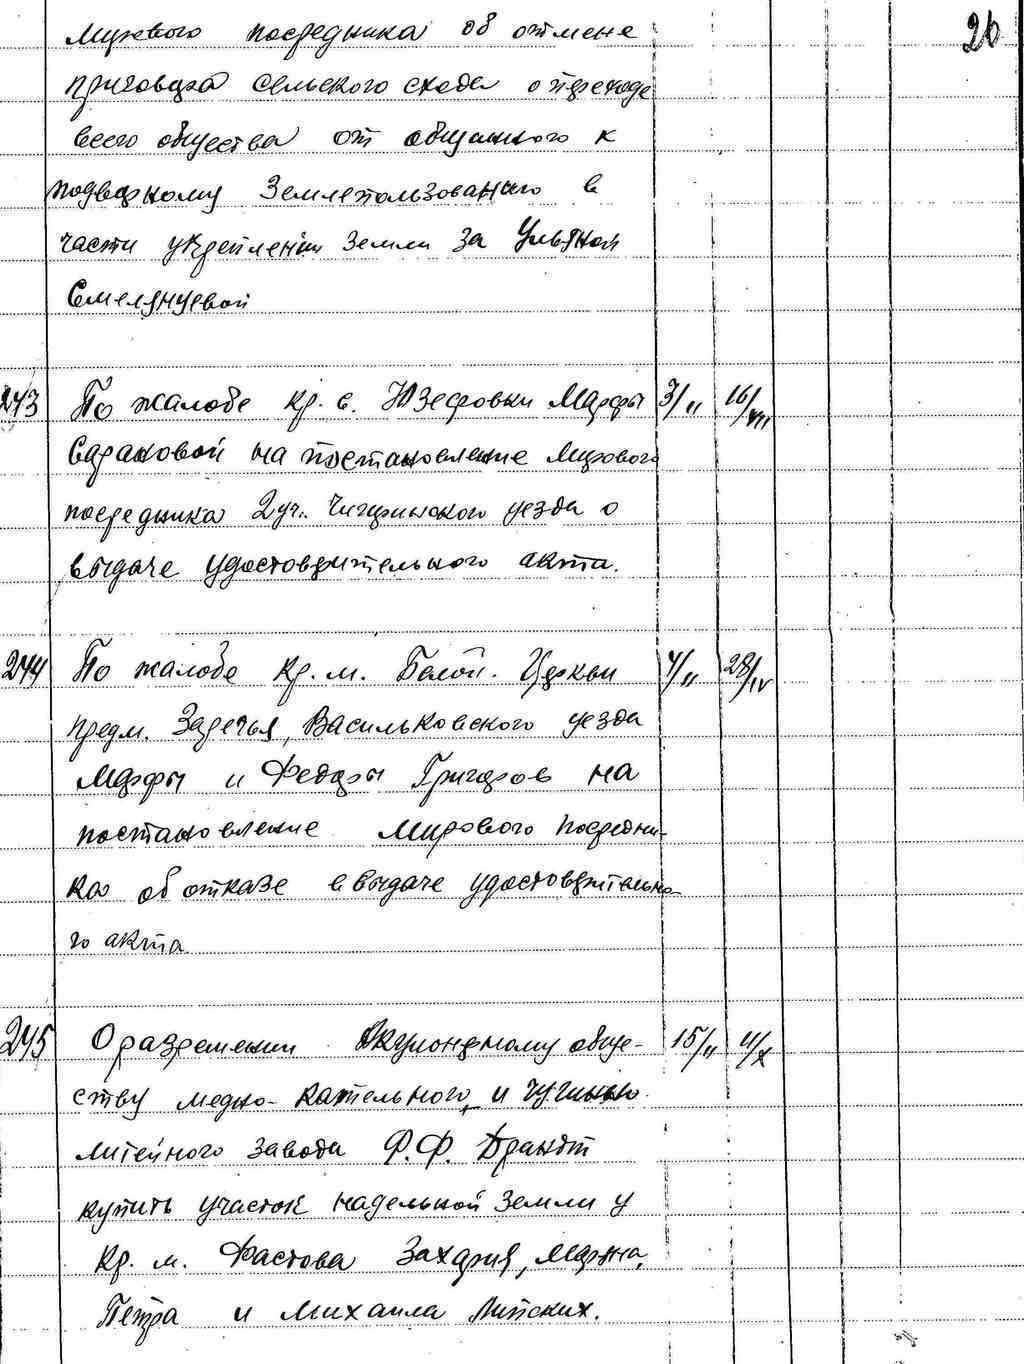 26
Мирового посредника об отмене
приговора сельского схода о переходе
всего общества от общинного к
подворному землепользованию в
части укрепления земли за Ульяной
Емелянцевой
243 По жалобе кр. с. Юзефовки Марфы 3/II 16/VII
Сарановой на постановление Мирового
посредника 2 уч. Чигиринского уезда о
выдаче удостоверительного акта.
244 По жалобе кр. м. Белой Церкви 4/II 28/IV
предм. Заречья, Васильковского уезда
Марфы и Федоры Григоров на
постановление Мирового Посредни-
ка об отказе в выдаче удостоверительно-
го акта
245 О разрешении Акционерному обще- 15/II 11/X
ству медно-котельного и чугунно
литейного завода Ф.Ф. Брандт
купить участок надельной земли у
кр. м. Фастова Захария,
Петра и Михаила Липских.